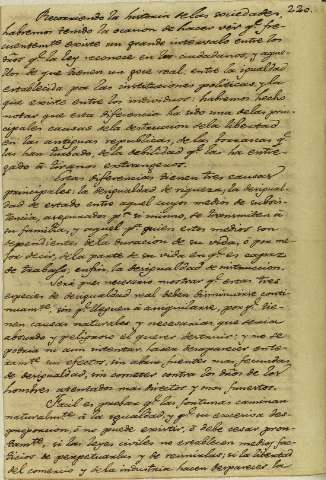 220.
Recorriendo la historia de las sociedades
habremos tenido la ocasion de hacer vér qᵉ. fre-
cuentemte. existe un grande intervalo entre los
dros. qᵉ. la ley reconoce en los ciudadanos, y aque-
llos de que tienen un goce real; entre la igualdad
establecida por las instituciones politicas y la
que existe entre los individuos: habremos hecho
notar que esta diferencia ha sido una de las prin-
cipales causas de la destruccion de la libertad
en las antiguas republicas, de las borrascas qᵉ.
las han turbado, de la debilidad qᵉ. las ha entre-
gado á tiranos extrangeros.
Estas diferencias tienen tres causas
principales: la desigualdad de riqueza, la desigual-
dad de estado entre aquel cuyos medios de subsis-
tencia, asegurados pᵃ. si mismo, se transmiten á
su familia, y aquel pᵃ. quien estos medios son
dependientes de la duracion de su vida, ó por me-
jor decir, de la parte de su vida en qᵉ. es capaz
de trabajo; enfin, la desigualdad de instruccion.
Será pues necesario mostrar qᵉ. estas tres
especies de desigualdad real deben disminuirse conti-
nuamte. sin qᵉ. lleguen á aniquilarse, porqᵉ. tie-
nen causas naturales y necesarias que seria
absurdo y peligroso el querer destruir; y no se
podria ni aun intentar hacer desaparecer entera-
mte. sus efectos, sin abrir fuentes mas fecundas
de desigualdad, sin cometer contra los dros. de los
hombres atentados mas directos y mas funestos.
Facil es probar qᵉ. las fortunas caminan
naturalmte. á la igualdad, y qᵉ. su excesiva des-
proporcion, ó no puede existir, ó debe cesar pron-
tamte., si las leyes civiles no establecen medios fac-
ticios de perpetuarlas y de reunirlas; si la libertad
del comercio y de la industria hacen desparecer la